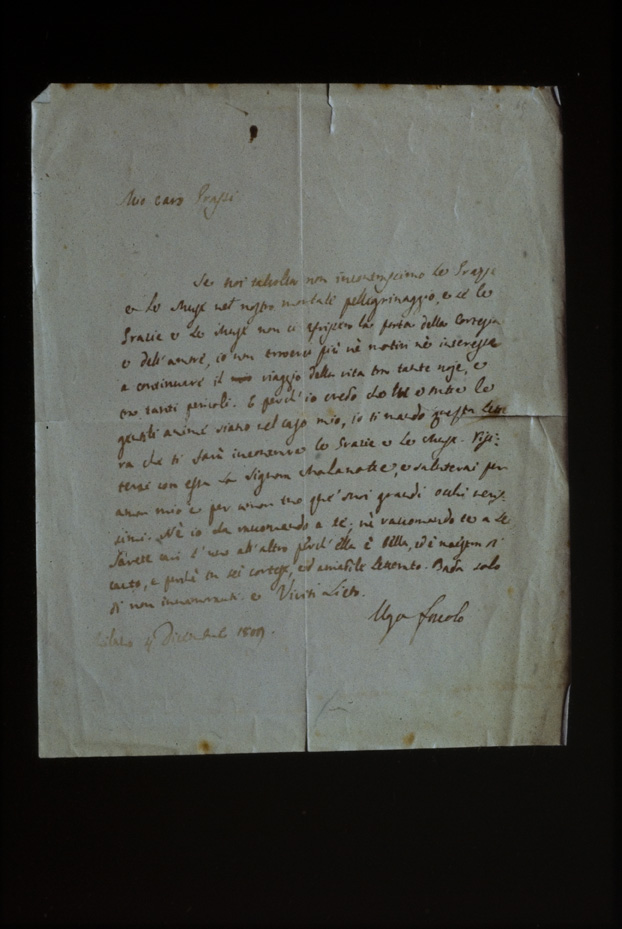 Mio caro Grassi
Se noi talvolta non incontrassimo le Grazie
e le Muse nel nostro mortale pellegrinaggio, e se le
Grazie e le Muse non ci aprissero la porta della Cortesia
e dell'amore, io non troverei più nè motivi nè interesse
a continuare il viaggio della vita tra tante noje, e
tra tanti pericoli. E perch'io credo che tu e tutte le
gentili anime siano nel caso mio, io ti mando questa lette
ra che ti farà incontrare le Grazie e le Muse. Visi:
terai con essa la Signora Malanotte, e saluterai per
amor mio e per amor tuo que' suoi grandi occhi neris:
simi. Nè io la raccomando a te; nè raccomando te a lei
Sarete cari l'uno all'altro perch'ella è bella, ed è
canto, e perchè tu sei cortese, ed amabile letterato. Bada solo
di non innamorarti. e Vivi Lieto.
Ugo Foscolo
Milano 4 Dicembre 1809.